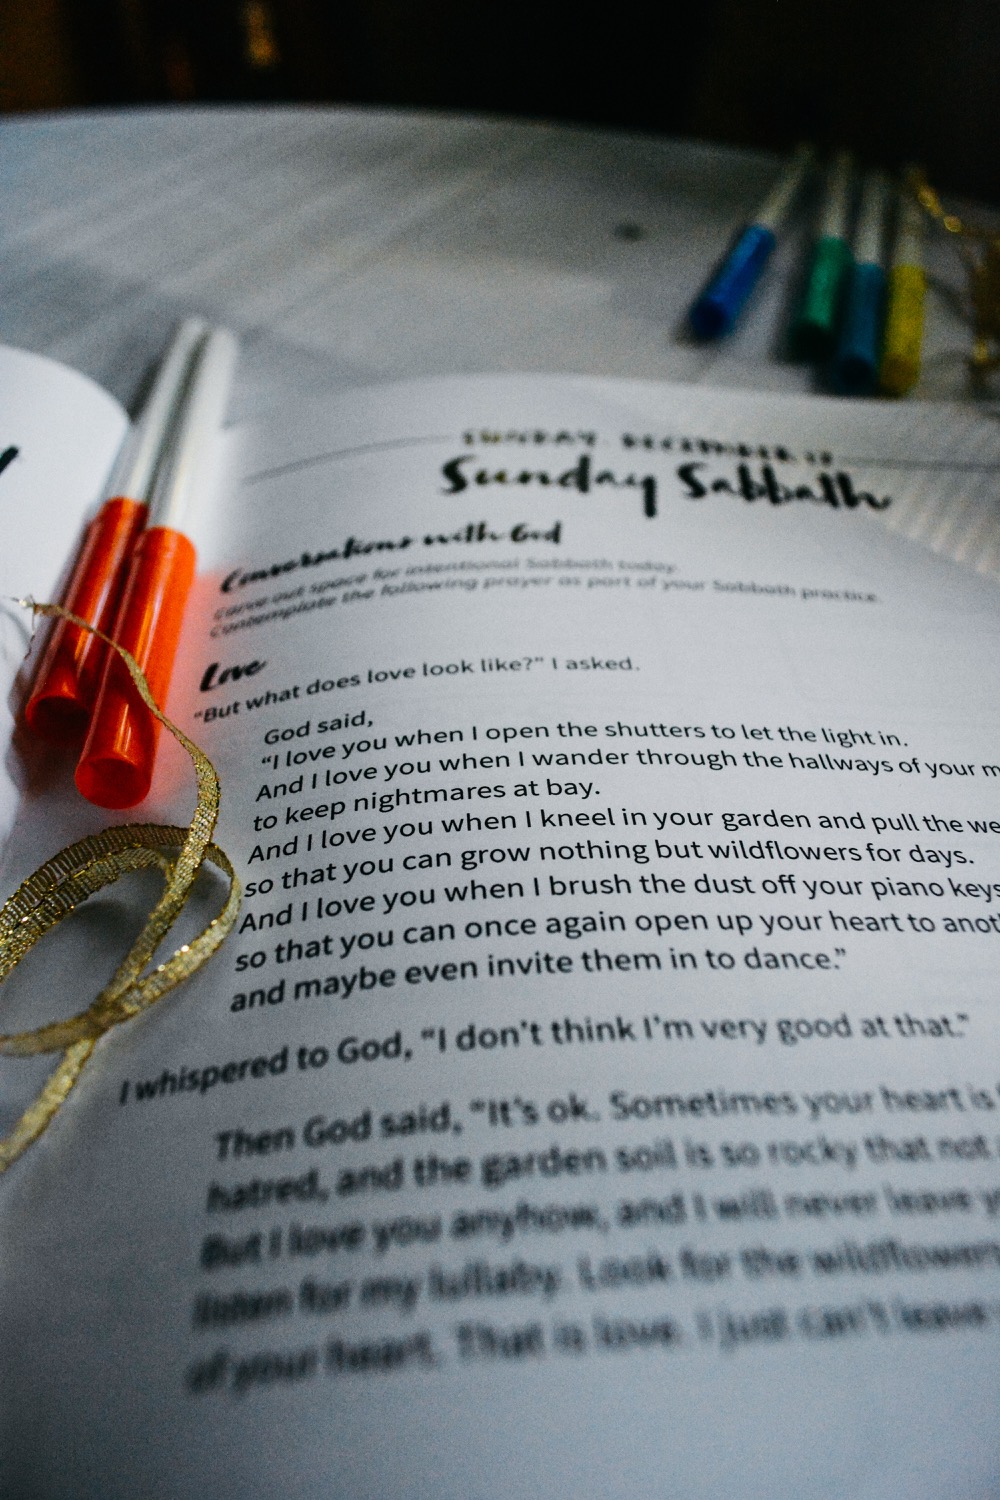 SUNDAY, DECEMBER
Sunday Sabbath
Conversations with God
Carve out space for intentional Sabbath today.
Contemplate the following prayer as part of your Sabbath practice.
Love
“But what does love look like?” I asked.
God said,
“I love you when I open the shutters to let the light in.
And I love you when I wander through the hallways of your m
to keep nightmares at bay.
And I love you when I kneel in your garden and pull the we
so that you can grow nothing but wildflowers for days.
And I love you when I brush the dust off your piano keys
so that you can once again open up your heart to anot
and maybe even invite them in to dance.”
I whispered to God, “I don’t think I’m very good at that.”
Then God said, “It’s ok. Sometimes your heart is
hatred, and the garden soil is so rocky that not
But I love you anyhow, and I will never leave y
listen for my lullaby. Look for the wildflowers
of your heart. That is love. I just can’t leave